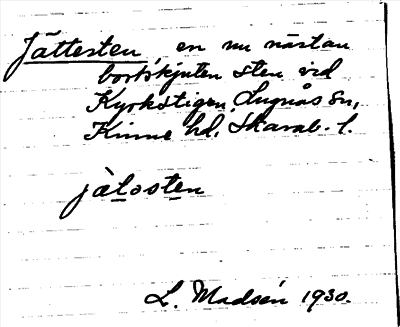 Jättesten, en nu nästan
bortskjuten sten vid
Kyrkstigen, Lugnås sn,
Kinne hd, Skarab. l.
jàtosten
L. Madsén 1930.